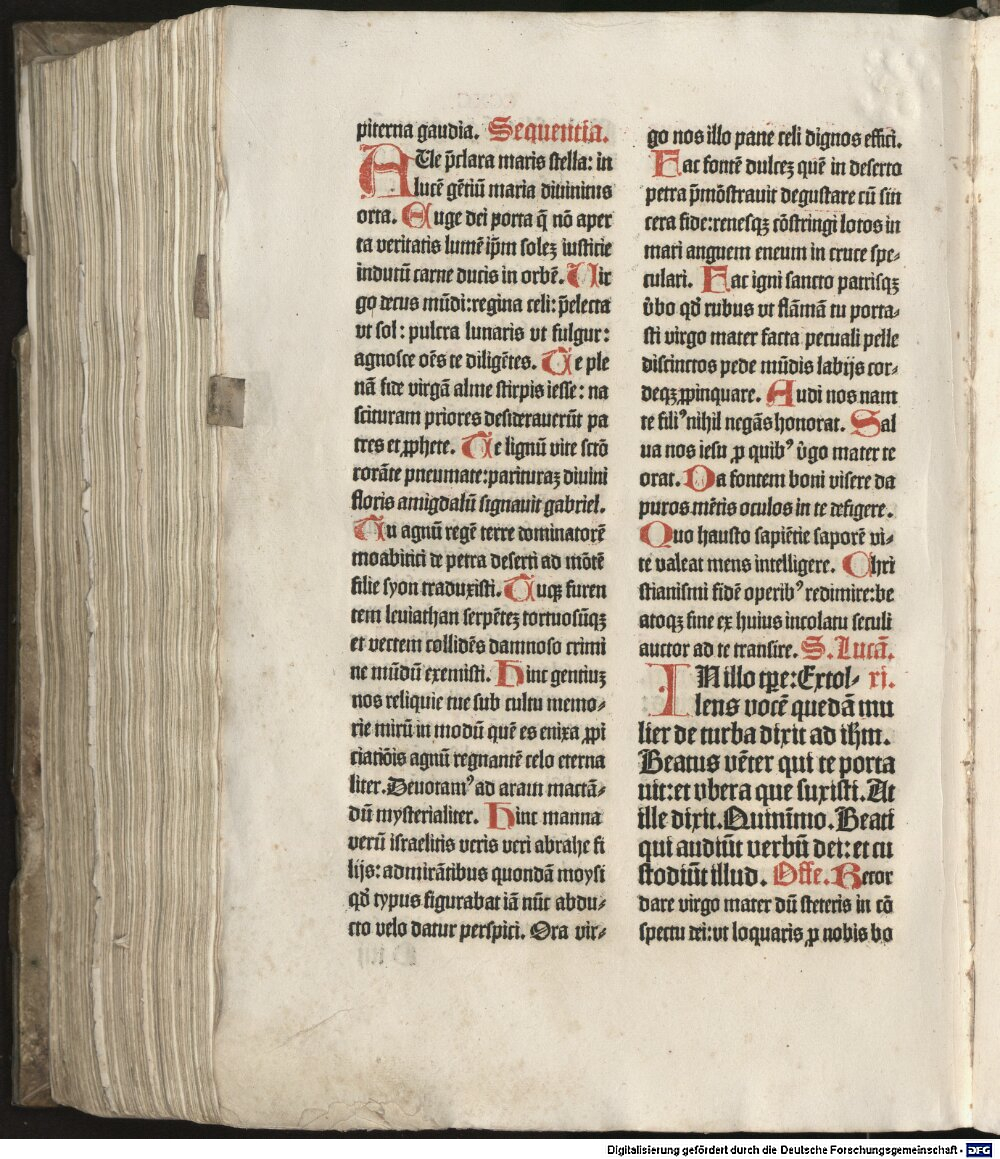 piterna gaudia. Sequentia.
AUe p̄clara maris stella: in
lucē gētiū maria diuinitus
orta. Euge dei porta q̄ nō aper
ta veritatis lumē ip̄m solez iusticie
indutū carne ducis in orbē. Uir
go decus mūdi:regina celi: p̄electa
vt sol: pulcra lunaris vt fulgur:
agnosce oēs te diligētes. Te ple
nā fide virgā alme stirpis iesse: na
scituram priores desiderauerūt pa
tres et ꝓphete. Te lignū vite sctō
rorāte pneumate:parituraz diuini
floris amigdalū signauit gabriel.
Tu agnū regē terre dominatorē
moabitici de petra deserti ad mōtē
filie syon traduxisti. Tuqꝫ furen
tem leuiathan serpētez tortuosūqꝫ
et vectem collidēs damnoso crimi
ne mūdū exemisti. Hinc gentiuz
nos reliquie tue sub cultu memo-
rie mirū in modū quē es enixa ꝓpi
ciatiōis agnū regnantē celo eterna
liter. Deuotamꝰ ad aram mactā-
dū mysterialiter. Hinc manna
verū israelitis veris veri abrahe fi
lijs: admirātibus quondā moysi
qd̄ typus figurabat iā nūc abdu-
cto velo datur perspici. Ora vir-
go nos illo pane celi dignos effici.
Fac fontē dulcez quē in deserto
petra p̄mōstrauit degustare cū sin
cera fide:renesqꝫ cōstringi lotos in
mari anguem eneum in cruce spe-
culari. Fac igni sancto patrisqꝫ
v̓bo qd̄ rubus vt flāmā tu porta-
sti virgo mater facta pecuali pelle
discinctos pede mūdis labijs cor-
deqꝫ ꝓpinquare. Audi nos nam
te filiꝰ nihil negās honorat. Sal
ua nos iesu ꝓ quibꝰ v̓go mater te
orat. Da fontem boni visere da
puros mētis oculos in te defigere.
Quo hausto sapiētie saporē vi-
te valeat mens intelligere. Chri
stianismi fidē operibꝰ redimire:be
atoqꝫ fine ex huius incolatu seculi
auctor ad te transire. S. Lucā.
IN illo tꝑe: Extol- xi.
lens vocē quedā mu
lier de turba dixit ad ih̄m.
Beatus vēter qui te porta
uit:et vbera que suxisti. At
ille dixit. Quinīmo. Beati
qui audiūt verbū dei: et cu
stodiūt illud. Offe. Recor
dare virgo mater dū steteris in cō
spectu dei:vt loquaris ꝓ nobis bo
Digitalisierung gefördert durch die Deutsche Forschungsgemeinschaft - DFG